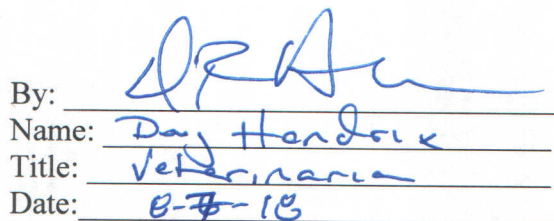 By:
Name: Doug Hendrix
Title: Veterinarian
Date: 8-7-18